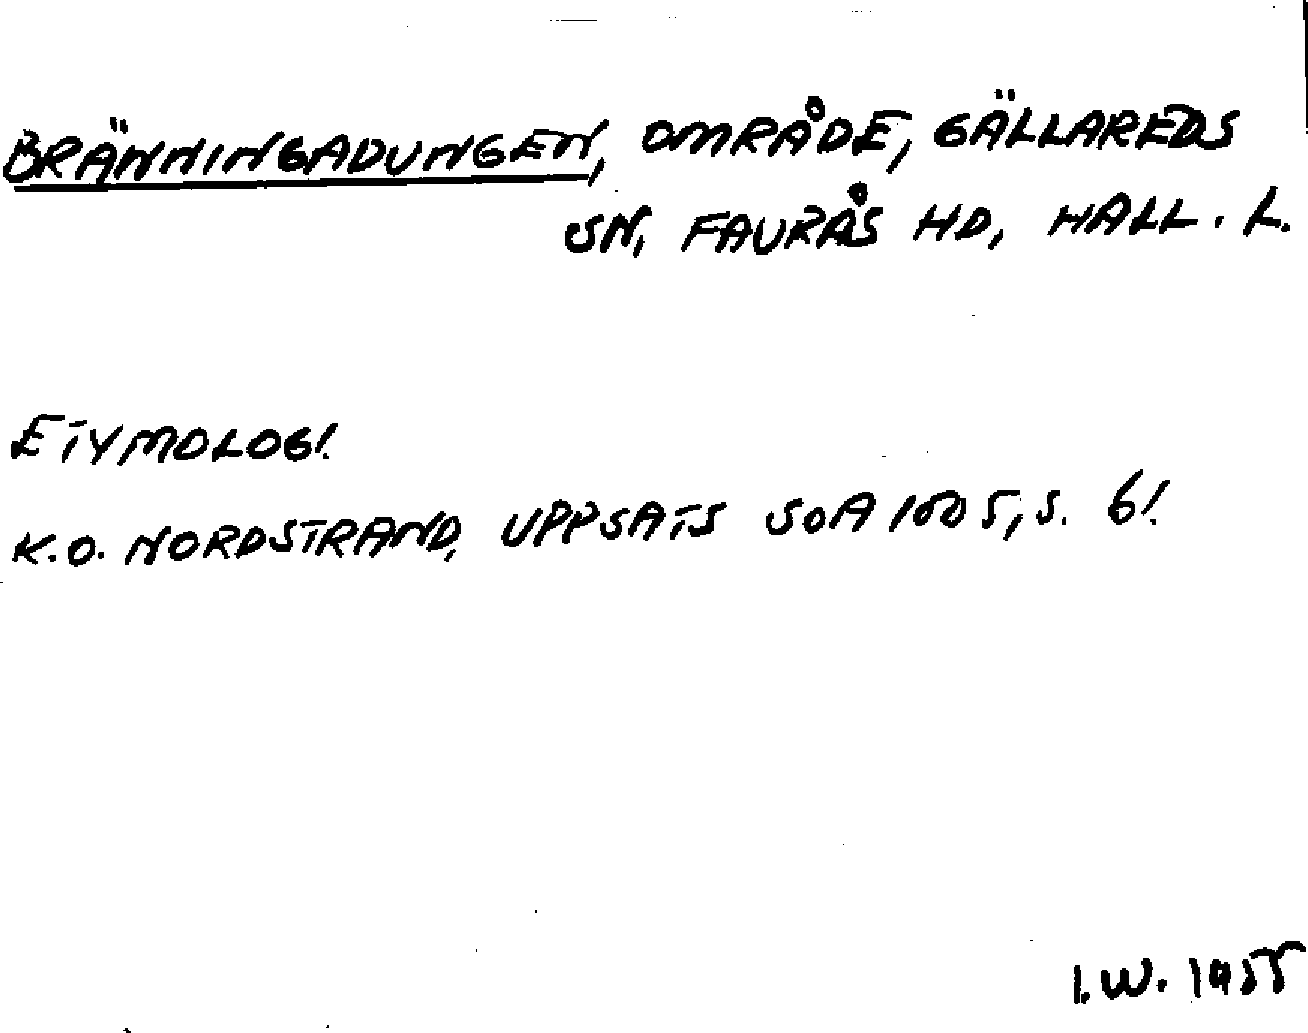 BRÄNNINGADUNGEN, OMRÅDE, GÄLLAREDS
SN, FAURÅS HD, HALL. L.
ETYMOLOGI.
K.O. NORDSTRAND, UPPSATS SOA 1005, S. 6!
I.W. 1955